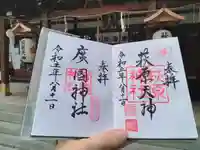 奉拝
萩原天神
令和五年八月十一日
奉拝
廣國神社
令和五年八月十一日